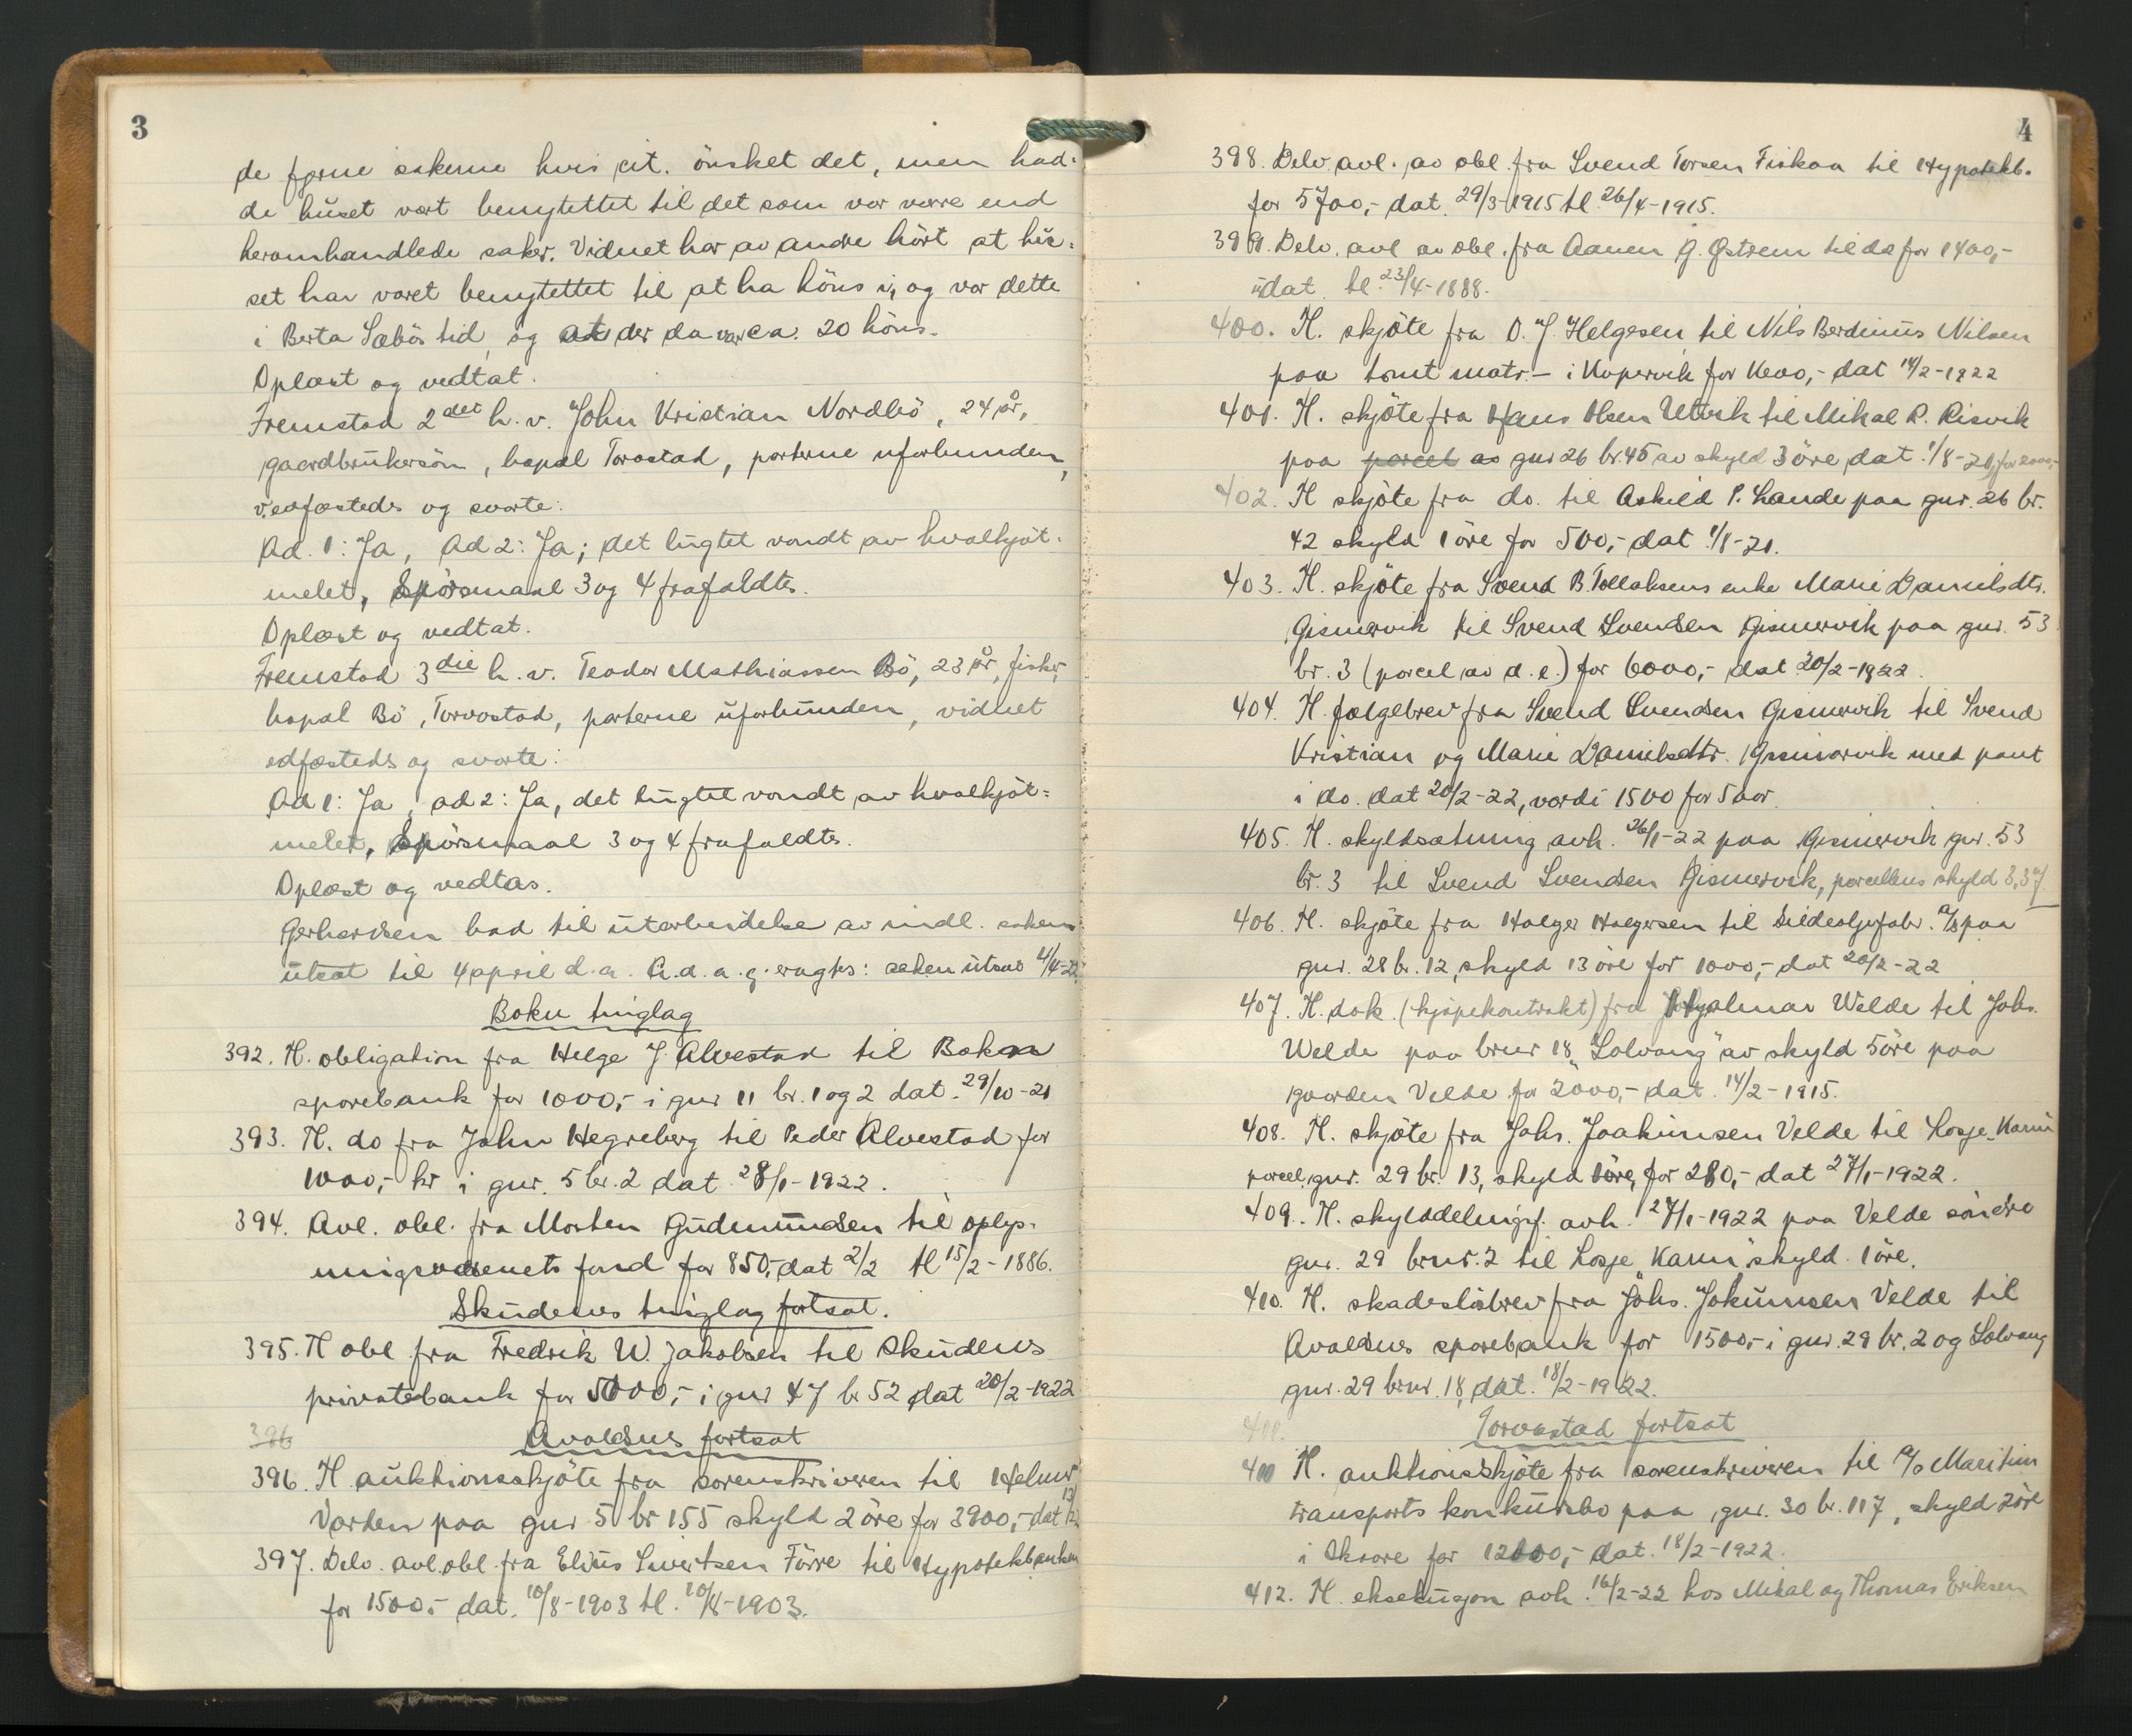 3
de fjerne sakerne hvis cit. önsket det, men had-
de huset vært benyttet til det som var verre end
heromhandlede saker. Vidnet har av andre hört at hu-
set har været benyttet til at ha höns i, og var dette
i Berta Sæbös tid, og at der da var ca. 20 höns.
Oplæst og vedtat.
Fremstod 2det h. v. John Kristian Nordbö, 24 år,
gaardbrukersön, bopæl Torvastad, parterne uforbunden,
v. edfæstedes og svarte:
Ad. 1: Ja, Ad 2: Ja; det lugtet vondt av hvalkjöt-
melet, Spörsmaal 3 og 4 frafaldtes.
Oplæst og vedtat.
Fremstod 3die h. v. Teodor Mathiassen Bö, 23 år, fisker,
bopæl Bö, Torvastad, parterne uforbunden, vidnet
edfæstedes og svarte:
Ad 1: Ja, ad 2: Ja, det lugtet vondt av hvalkjöt-
melet, Spörsmaal 3 og 4 frafaldtes.
Oplæst og vedtas.
Gerhardsen bad til utarbeidelse av indl. saken
utsat til 4 april d. a. A. d. a. q. eragtes: saken utsat 4/4-22
Bokn tinglag
392. H. obligation fra Helge J. Alvestad til Bokn
sparebank for 1000,- i gnr 11 br. 1 og 2 dat. 29/10-21
393. H. do fra John Hegreberg til Peder Alvestad for
1000,- kr i gnr. 5 br. 2 dat. 28/1-1922.
394. Avl. obl. fra Morten Gudmundsen til oplys-
ningsvæsenets fond for 850,- dat 2/2 tl 15/2-1886.
Skudenes tinglag fortsat.
395. H obl fra Fredrik W. Jakobsen til Skudenes
privatebank for 5000,- i gnr 47 br 52 dat 20/2-1922
396
Avaldsnes fortsat
396. H auktionsskjöte fra sorenskriveren til Helmer
Varden paa gnr 5 br 155 skyld 2 öre for 3900,- dat
397. Delv. avl. obl fra Elius Sivertsen Förre til Hypotekbanken
for 1500,- dat. 10/8-1903 tl. 10/8-1903.
4
398. Delv. avl. av obl. fra Svend Torsen Fiskaa til Hypotekb.
for 5700,- dat. 29/3-1915 tl. 26/4-1915.
399. Delv. avl av obl. fra Aanen G. Østrem til do for 1400,-
udat. tl. 23/4-1888.
400. H. skjöte fra O. J. Helgesen til Nils Berdinius Nilsen
paa tomt matr.- i Kopervik for 1600,- dat 14/2-1922
401. H. skjöte fra Hans Olsen Utvik til Mikal R. Risvik
paa parcel av gnr 26 br. 45 av skyld 3 öre dat. 1/8-21, for 2000,-
402. H skjöte fra do. til Askild P. Lande paa gnr. 26 br.
42 skyld 1 öre for 500,- dat 1/8-21.
403. H. skjöte fra Svend B. Tollaksens enke Marie Danielsdtr.
Gismervik til Svend Svendsen Gismervik paa gnr. 53
br. 3 (parcel av d. e.) for 6000,- dat. 20/2-1922.
404. H. følgebrev fra Svend Svendsen Gismervik til Svend
Kristian og Marie Danielsdtr. Gismervik med pant
i do. dat 20/2-22, værdi 1500 for 5 aar.
405. H. skyldsætning avh. 26/1-22 paa Gismervik gnr. 53
br. 3 til Svend Svendsen Gismervik, parcellens skyld 3,37.
406. H. skjöte fra Holger Holgersen til Sildeoljefabr. A/S paa
gnr. 28 br. 12, skyld 13 öre for 1000,- dat 20/2-22
407. H. dok. (kjøpekontrakt) fra Hjalmar Velde til Johs.
Velde paa brnr 18 "Solvang" av skyld 5 öre paa
gaarden Velde for 2000,- dat. 14/2-1915.
408. H. skjöte fra Johs. Joakimsen Velde til Losje "Karm"
parcel, gnr. 29 br. 13, skyld 1 öre, for 280,- dat 27/1-1922.
409. H. skylddelingsf. avh. 27/1-1922 paa Velde söndre
gnr. 29 brnr. 2 til Losje "Karm" skyld 1 öre.
410. H. skadeslösbrev fra Johs. Jokumsen Velde til
Avaldsnes sparebank for 1500,- i gnr. 29 br. 2 og Solvang
gnr. 29 brnr. 18, dat. 18/2-1922.
Torvastad fortsat
411 H. auktionsskjöte fra sorenskriveren til A/S Maritim
transports konkursbo paa gnr. 30 br. 117, skyld 2 öre
i Skaare for 12000,- dat. 18/2-1922.
412. H. eksekusjon avh. 16/2-22 hos Mikal og Thomas Eriksen